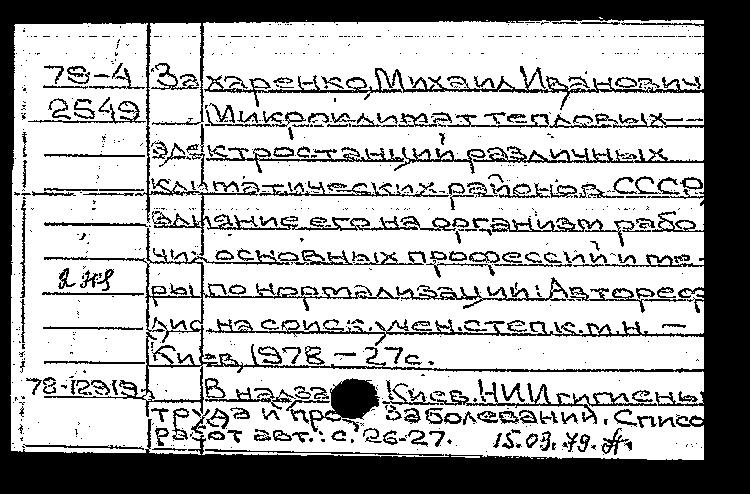 78-4 Захаренко, Михаил Иванович.
2549 Микроклимат тепловых
электростанций различных
климатических районов СССР,
влияние его на организм рабо
чих основных профессий и ме-
2 экз
ры по нормализации: Автореф
дис. на соиск. учен. степ. к.м.н. —
Киев, 1978 – 27с.
78-12919 В надзаг Киев. НИИ гигиены
труда и проф заболеваний. Списо
работ авт.: с. 26-27. 15.03.79.